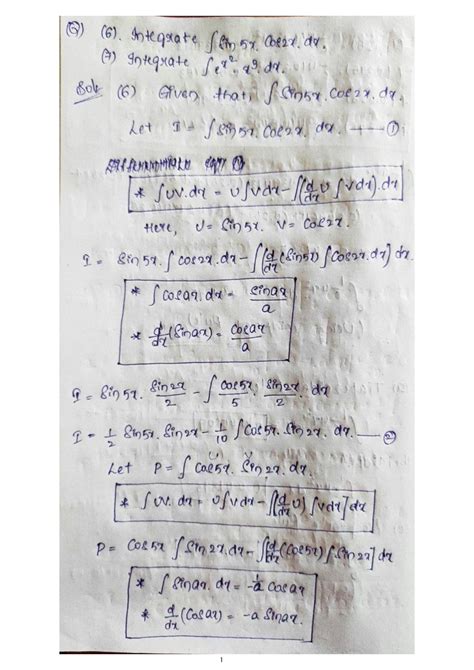 (Q) (6). Integrate ∫Sin5x. Cos2x. dx.
(7) Integrate ∫e^x². x⁹. dx.
Sol: (6) Given that, ∫Sin5x. Cos2x. dx.
Let I = ∫Sin5x. Cos2x. dx. — ①
* ∫UV. dx = U∫Vdx - ∫(d/dx U ∫Vdx). dx
Here, U = Sin5x. V = Cos2x.
I = Sin5x. ∫Cos2x. dx - ∫[d/dx (Sin5x) ∫Cos2x. dx] dx.
* ∫Cosax. dx = Sinax/a
* d/dx (Sinax) = Cosax/a
I = Sin5x. Sin2x/2 - ∫Cos5x/5. Sin2x/2. dx
I = 1/2 Sin5x. Sin2x - 1/10 ∫Cos5x. Sin2x. dx. — ②
Let P = ∫Cos5x. Sin2x. dx.
* ∫UV. dx = U∫Vdx - ∫[d/dx U) ∫Vdx] dx
P = Cos5x ∫Sin2x. dx - ∫[d/dx (Cos5x) ∫Sin2x] dx
* ∫Sinax. dx = -1/a Cosax
* d/dx (Cosax) = -a Sinax.
1